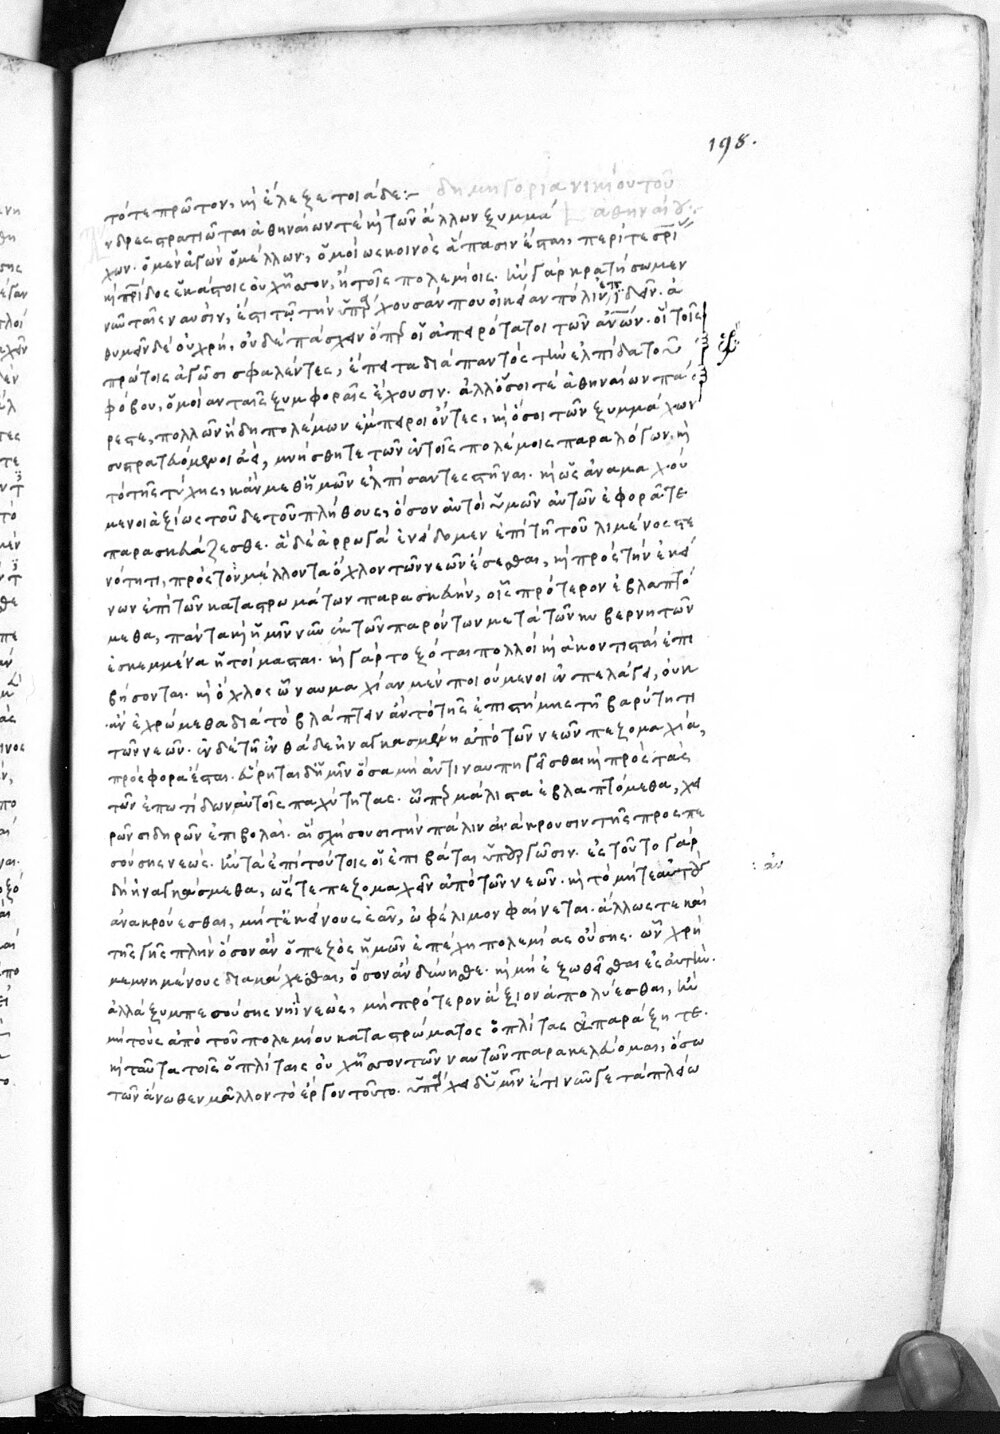 198.
τότε πρῶτον, καὶ ἔλεξε τοιάδε:– δημηγορία νικίου τοῦ
ἀθηναίου:–
νδρες στρατιῶται ἀθηναίων τὲ καὶ τῶν ἄλλων ξυμμά
χων. ὁ μὲν ἀγὼν ὁ μέλλων, ὁμοίως κοινὸς ἅπασιν ἔσται, περί τε σρίας
καὶ πρίδος ἑκάστοις οὐχ ἧσσον, ἢ τοῖς πολεμίοις. ἢν γὰρ κρατήσωμεν
νῦν ταῖς ναυσὶν, ἔστι τῳ τὴν ὑπάρχουσαν που οἰκείαν πόλιν ἐπιδεῖν. ἀ
θυμεῖν δὲ οὐ χρὴ, οὐδὲ πάσχειν ὅπερ οἱ ἀπειρότατοι τῶν ἀνῶν. οἳ τοῖς
πρώτοις ἀγῶσι σφαλέντες, ἔπειτα διὰ παντὸς τὴν ἐλπίδα τοῦ
φόβου, ὁμοίαν ταῖς ξυμφοραῖς ἔχουσιν. ἀλλ' ὅσοι τὲ ἀθηναίων πά
ρεστε, πολλῶν ἤδη πολέμων ἔμπειροι ὄντες, καὶ ὅσοι τῶν ξυμμάχων
συστρατευόμενοι ἀεὶ, μνήσθητε τῶν ἐν τοῖς πολέμοις παραλόγων. καὶ
τὸ τῆς τύχης, κἂν μεθ' ἡμῶν ἐλπίσαντες στῆναι. καὶ ὡς ἀναμαχού
μενοι ἀξίως τοῦδε τοῦ πλήθους, ὅσον αὐτοὶ ὑμῶν αὐτῶν ἐφορᾶτε.
παρασκευάζεσθε. ἃ δὲ ἀρρωγὰ ἐνείδομεν ἐπὶ τῇ τοῦ λιμένος στε
νότητι, πρὸς τὸν μέλλοντα ὄχλον τῶν νεῶν ἔσεσθαι, καὶ πρὸς τὴν ἐκεί
νων ἐπὶ τῶν καταστρωμάτων παρασκευὴν, οἷς πρότερον ἐβλαπτό
μεθα, πάντα καὶ ἡμῖν νῦν ἐκ τῶν παρόντων μετὰ τῶν κυβερνητῶν
ἐσκεμμένα ἡτοίμασται. καὶ γὰρ τοξόται πολλοὶ καὶ ἀκοντισταὶ ἐπι
βήσονται. καὶ ὄχλος ᾧ ναυμαχίαν μὲν ποιούμενοι ἐν πελάγει, οὐκ
ἂν ἐχρώμεθα διὰ τὸ βλάπτειν ἂν τὸ τῆς ἐπιστήμης τῇ βαρύτητι
τῶν νεῶν. ἐν δὲ τῇ ἐνθάδε ἠναγκασμένῃ ἀπὸ τῶν νεῶν πεζομαχίᾳ,
πρόσφορα ἔσται. εὕρηται δ' ἡμῖν ὅσα μὴ ἀντιναυπηγεῖσθαι καὶ πρὸς τὰς
τῶν ἐπωτίδων αὐτοῖς παχύτητας. ᾧπερ μάλιστα ἐβλαπτόμεθα, χει
ρῶν σιδηρῶν ἐπιβολαί. αἳ σχήσουσι τὴν πάλιν ἀνάκρουσιν τῆς προσπε
σούσης νεώς. ἢν τὰ ἐπὶ τούτοις οἱ ἐπιβάται ὑπουργῶσιν. ἐς τοῦτο γὰρ
δὴ ἠναγκάσμεθα, ὥστε πεζομαχεῖν ἀπὸ τῶν νεῶν. καὶ τὸ μήτε αὐτοὺς
: ἀν
ἀνακρούεσθαι, μήτ' ἐκείνους ἐᾶν, ὠφέλιμον φαίνεται. ἄλλως τε καὶ
τῆς γῆς πλὴν ὅσον ἂν ὁ πεζὸς ἡμῶν ἐπέχῃ πολεμίας οὔσης. ὧν χρὴ
μεμνημένους διαμάχεσθαι, ὅσον ἂν δύνησθε. καὶ μὴ ἐξωθεῖσθαι ἐς αὐτήν.
ἀλλὰ ξυμπεσούσης νηῒ νεὼς, μὴ πρότερον ἀξιοῦν ἀπολύεσθαι, ἢν
μὴ τοὺς ἀπὸ τοῦ πολεμίου καταστρώματος ὁπλίτας ἀπαράξητε.
καὶ ταῦτα τοῖς ὁπλίταις οὐχ ἧσσον τῶν ναυτῶν παρακελεύομαι, ὅσω
τῶν ἄνωθεν μᾶλλον τὸ ἔργον τοῦτο. ὑπάρχει δ' ἡμῖν ἔτι νῦν γε τὰ πλείω